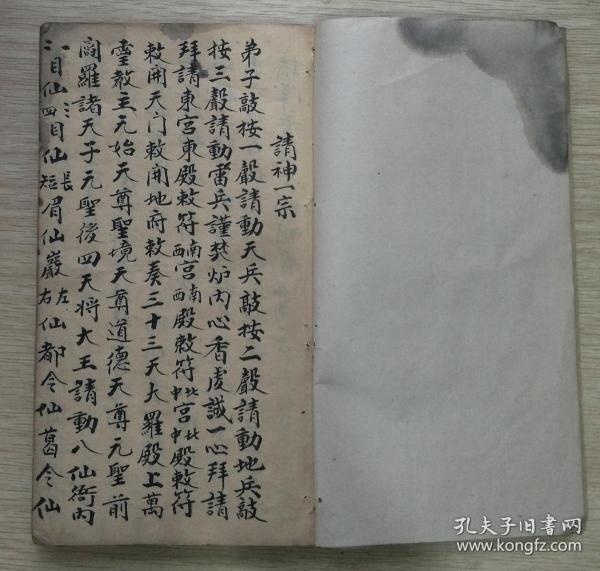 請神一宗
弟子敲按一殸請動天兵敲按二殸請動地兵敲
按三殸請動雷兵謹焚炉内心香虔誠一心拜請
拜請東宮東殿敕符南西宮南西殿敕符北中宮北中殿敕符
敕開天门敕開地府敕奏三十三天大羅殿上萬
灵教主元始天尊聖境天尊道德天尊元聖前
閻羅諸天子元聖後四天将大王請動八仙衙内
二目仙四目仙長短眉仙巖左右仙都令仙葛令仙
孔夫子旧書网
www.kongfz.com